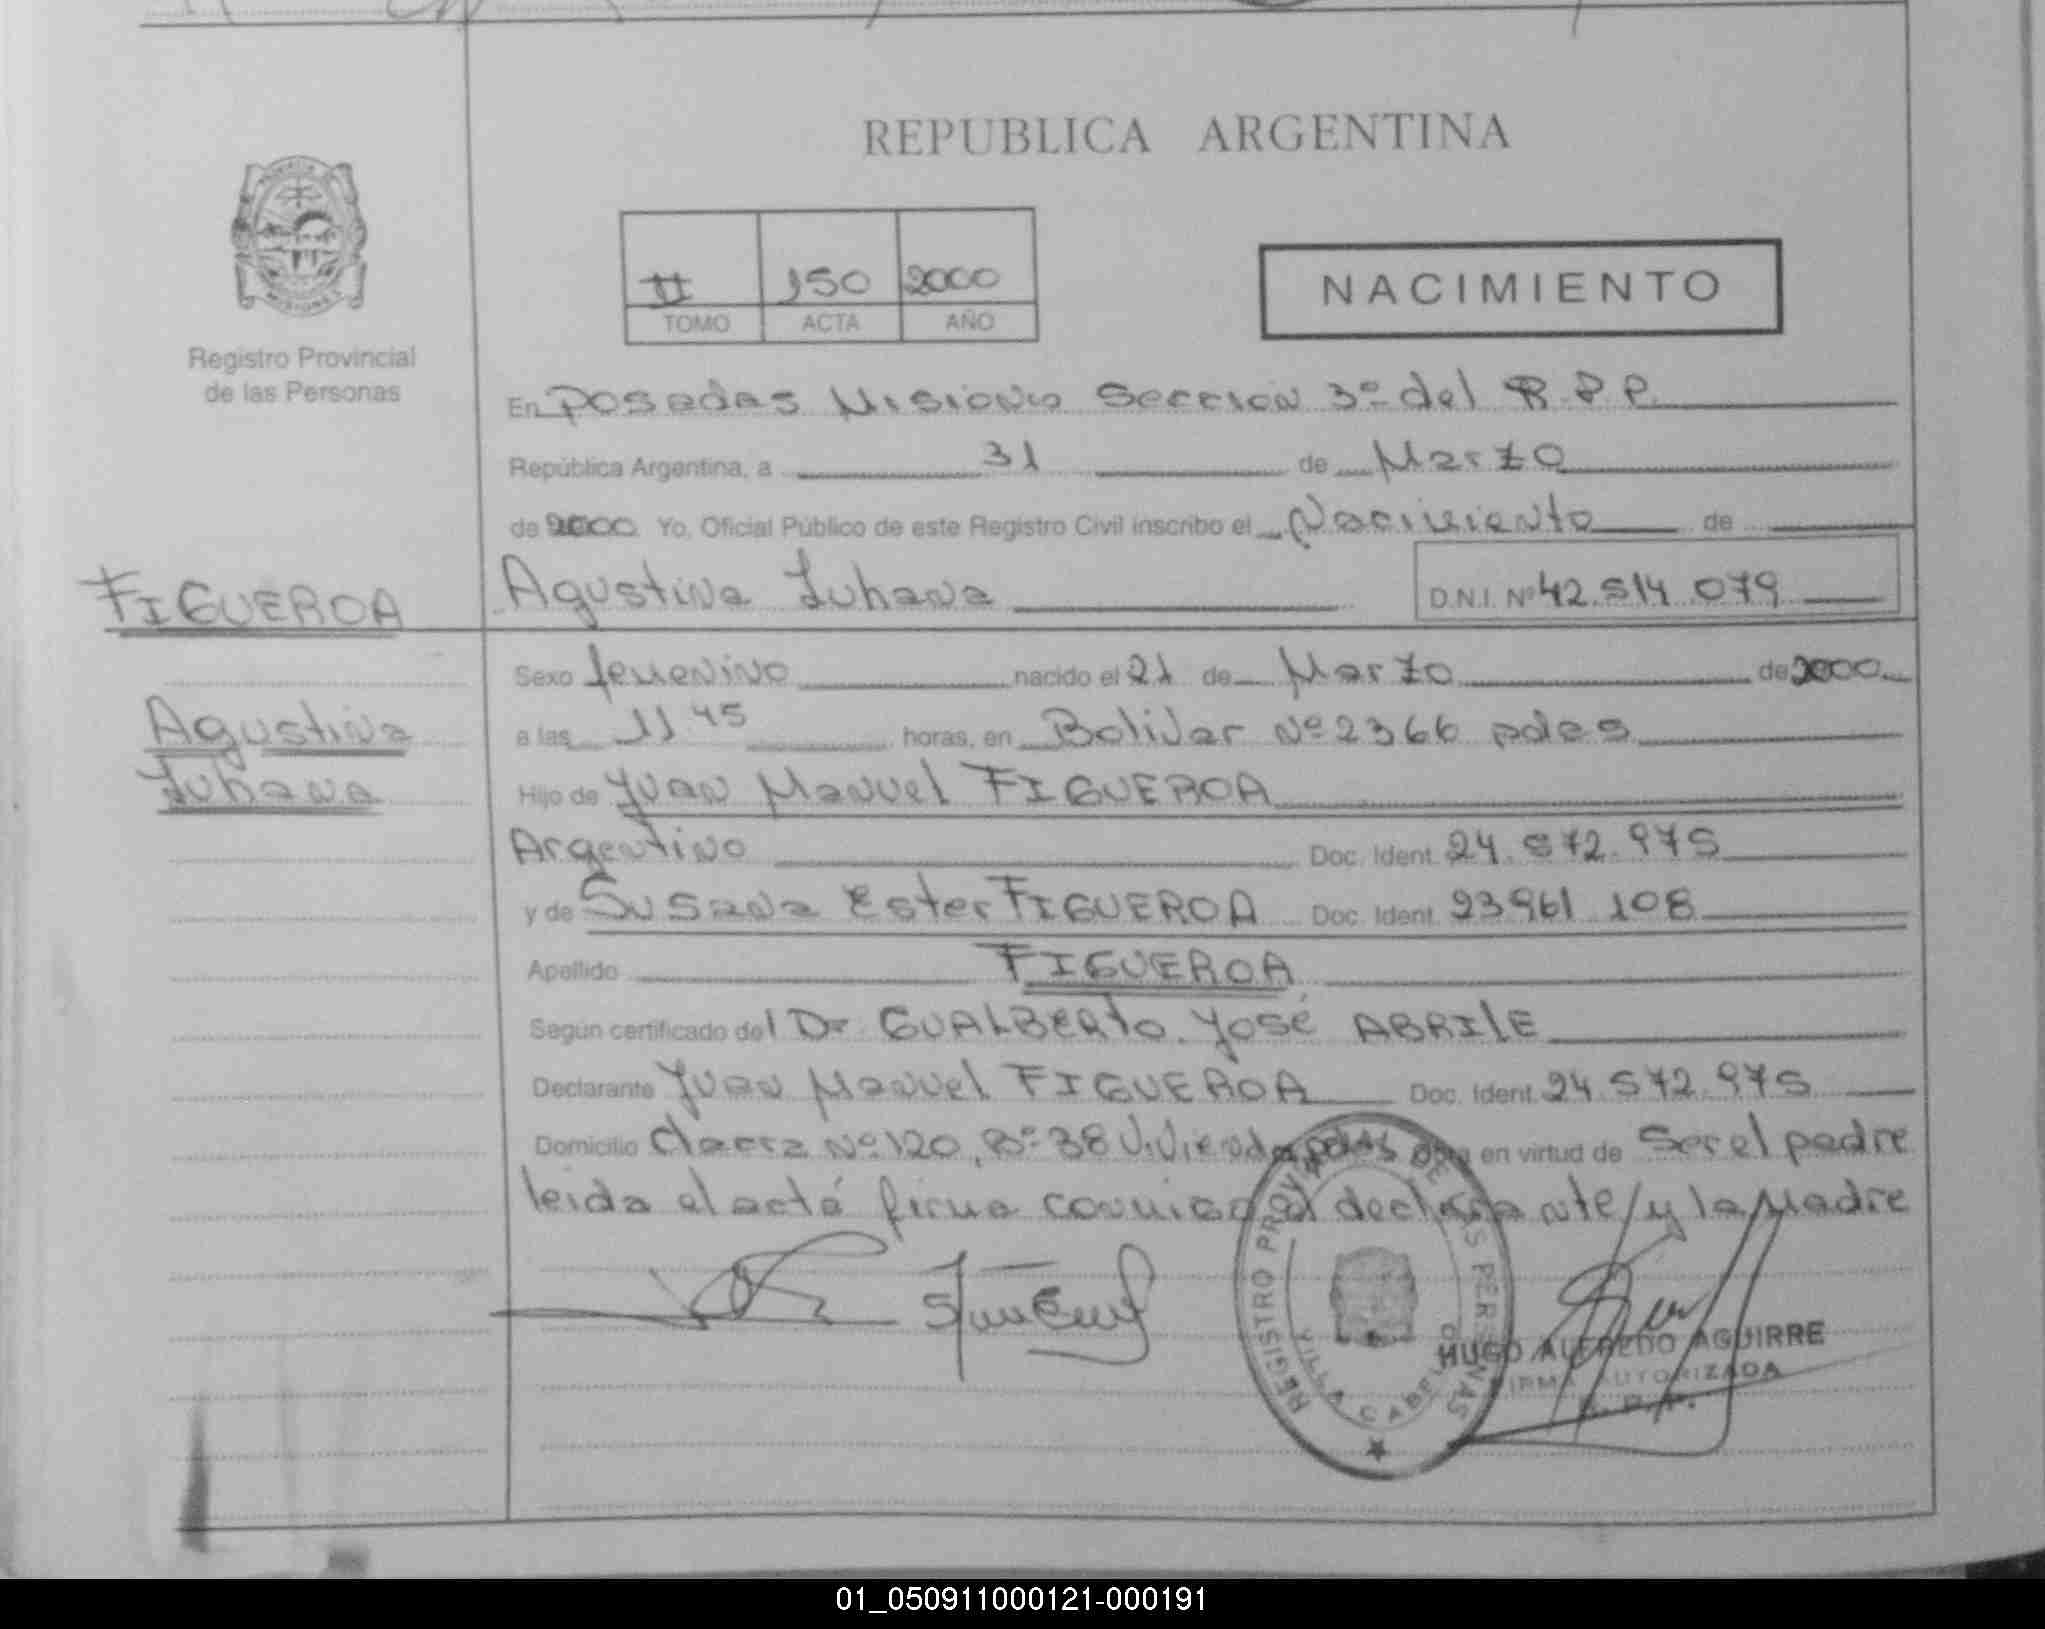 REPUBLICA ARGENTINA
II 150 2000
TOMO ACTA AÑO
NACIMIENTO
Registro Provincial
de las Personas
En Posadas Misiones Seccion 3º del R.P.P.
República Argentina, a 31 de Marzo
de 2000 Yo, Oficial Público de este Registro Civil inscribo el Nacimiento de
FIGUEROA
Agustina Juhana
D.N.I. Nº 42.514.079
Agustina
Juhana
Sexo femenino nacido el 21 de Marzo de 2000
a las 11 45 horas, en Bolivar Nº 2366 pdas
Hijo de Juan Manuel FIGUEROA
Argentino Doc. Ident. 24.572.975
y de Susana Ester FIGUEROA Doc. Ident. 23961 108
Apellido FIGUEROA
Según certificado del Dr GUALBERTO José ABRILE
Declarante Juan Manuel FIGUEROA Doc. Ident. 24.572.975
Domicilio Nº 120, Bº 38 Viviendas pdas en virtud de Ser el padre
leida el acta firma conmigo el declarante/y la Madre
REGISTRO PROVINCIAL DE LAS PERSONAS
VILLA CABELLO
HUGO ALFREDO AGUIRRE
FIRMA AUTORIZADA
R. P. P.
01_050911000121-000191